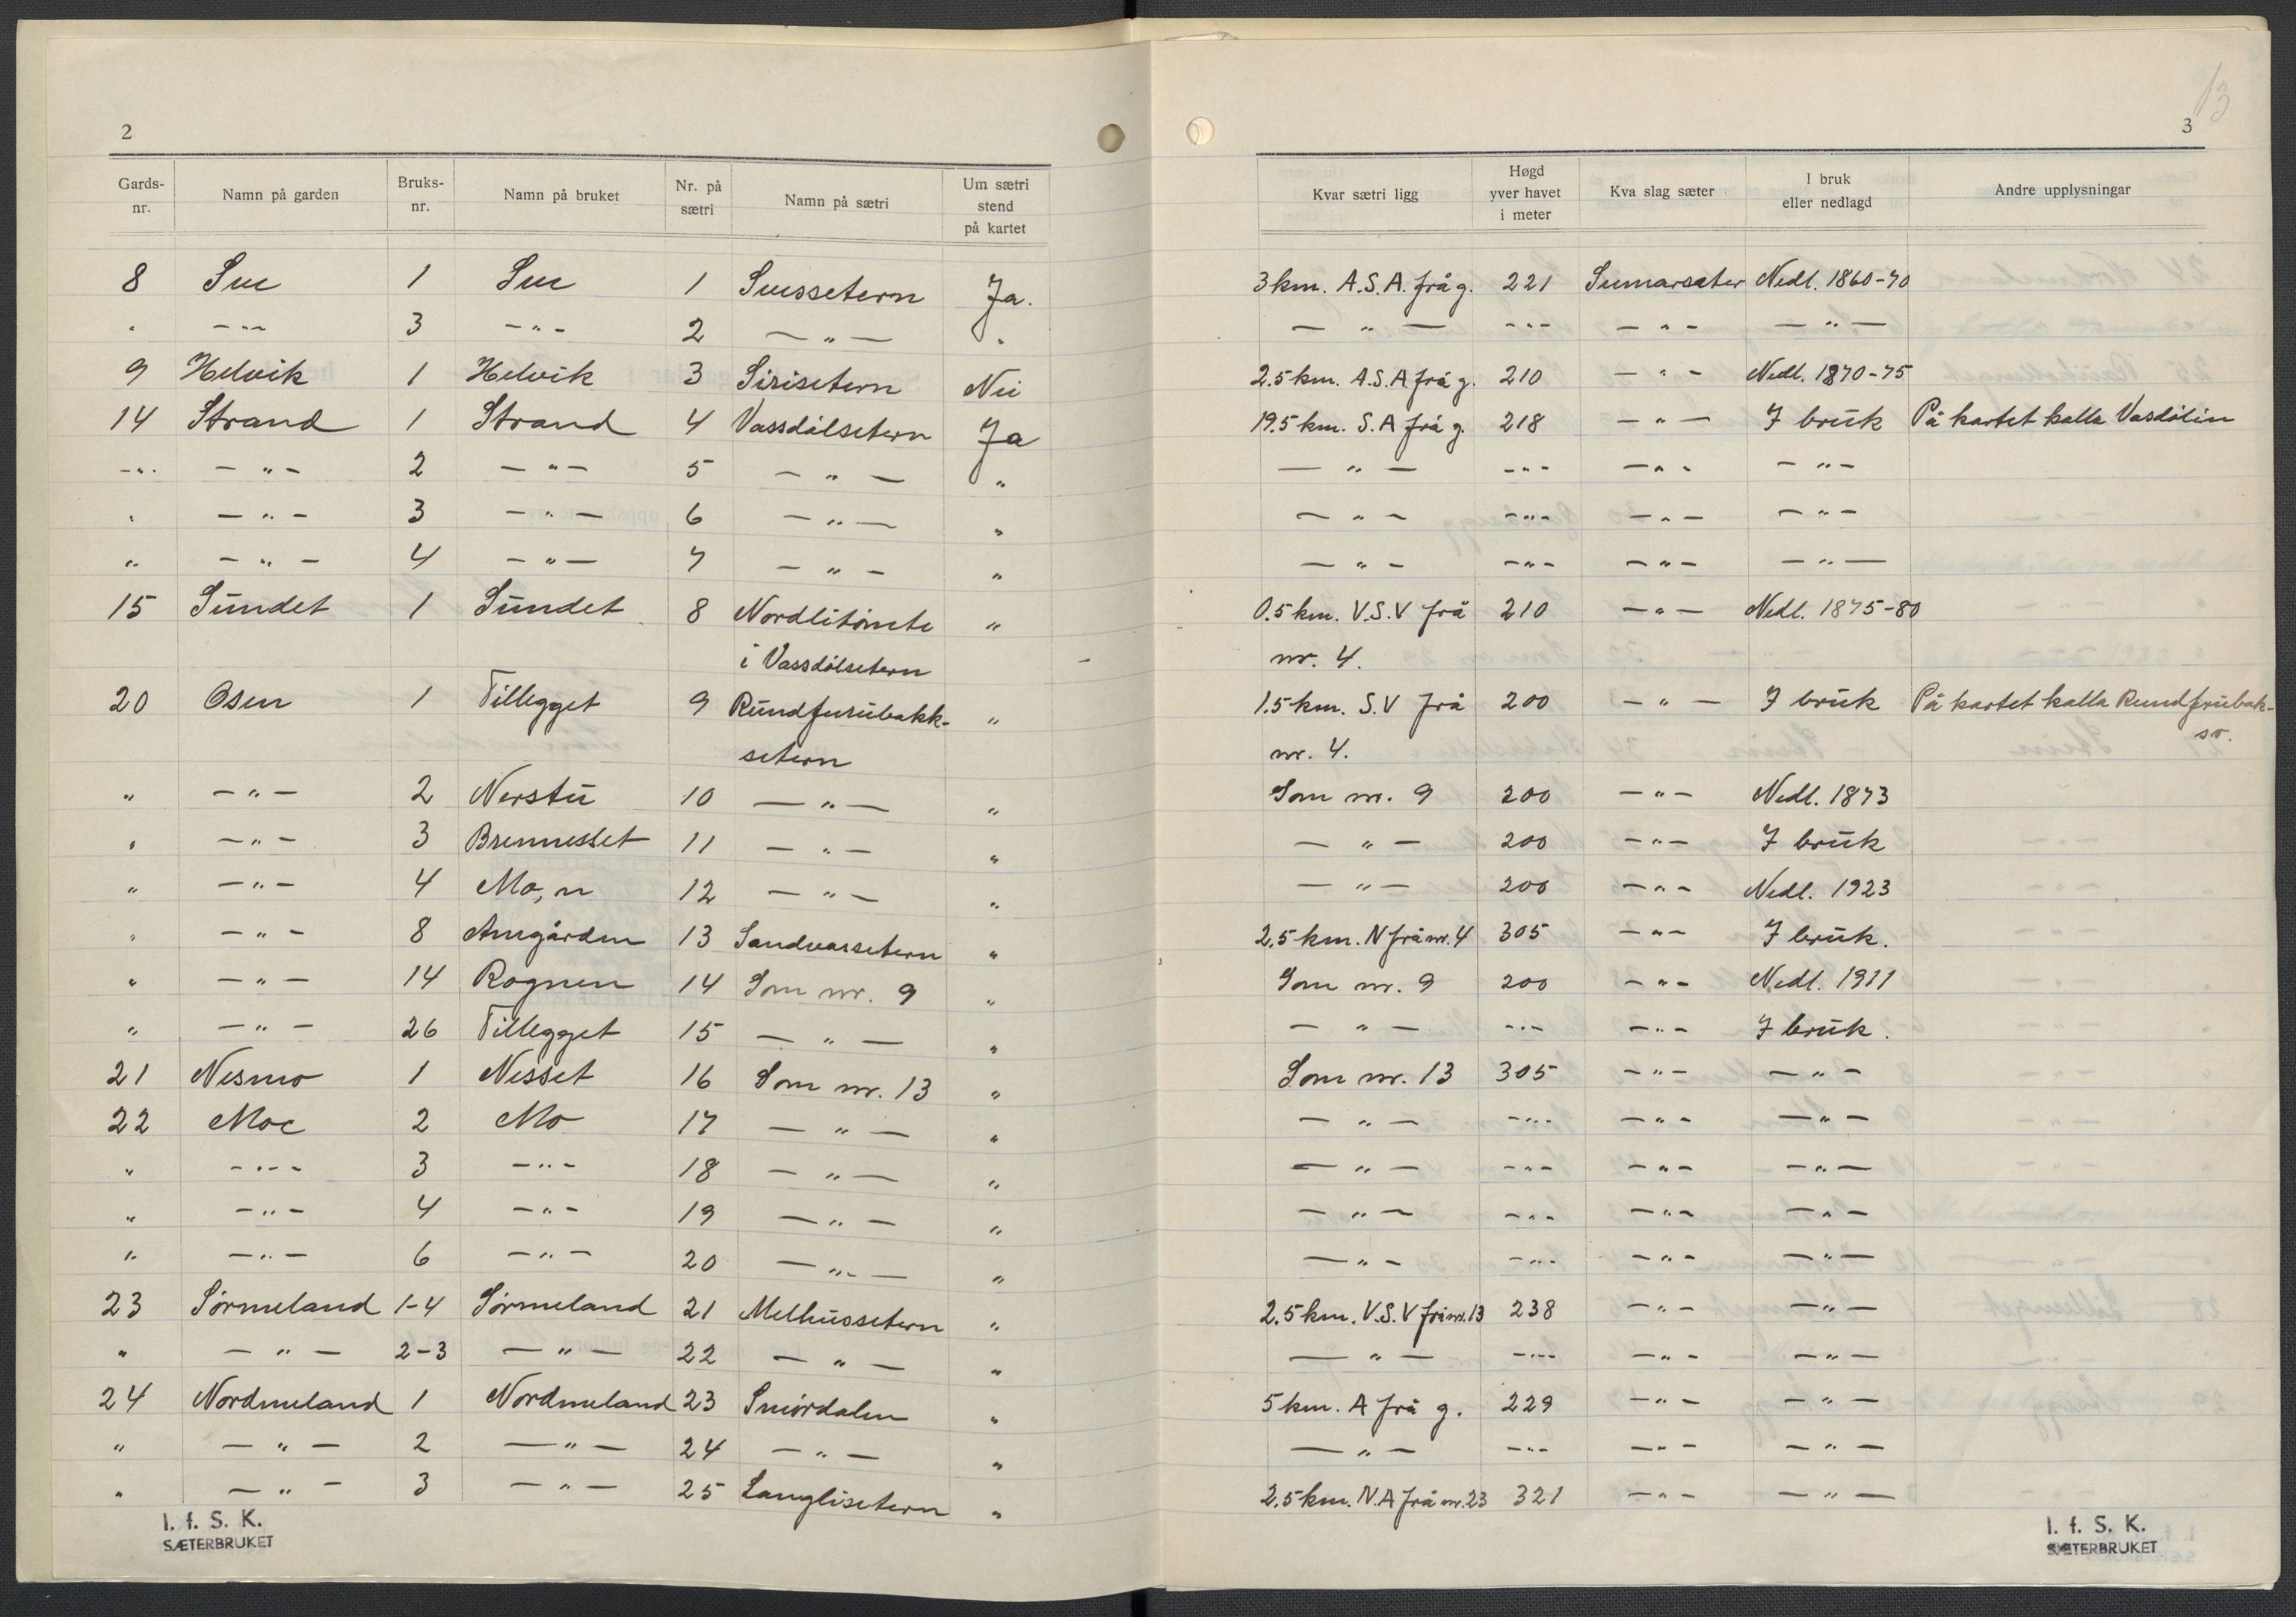 2
Gards-nr. Namn på garden Bruks-nr. Namn på bruket Nr. på sætri Namn på sætri Um sætri stend på kartet
8 Sue 1 Sue 1 Suessetern Ja.
" -"- 3 -"- 2 -"- "
9 Helvik 1 Helvik 3 Sirisetern Nei
14 Strand 1 Strand 4 Vassdølsetern Ja
-"- -"- 2 -"- 5 -"- "
" -"- 3 -"- 6 -"- "
" -"- 4 -"- 7 -"- "
15 Sundet 1 Sundet 8 Nordlitomte "
i Vassdølsetern
20 Osen 1 Tillegget 9 Rundfurubakk- "
setern
" -"- 2 Nerstu 10 -"- "
" -"- 3 Brennesset 11 -"- "
" -"- 4 Mo, n 12 -"- "
" -"- 8 Amgården 13 Sandvassetern "
" -"- 14 Rognen 14 Som nr. 9 "
" -"- 26 Tillegget 15 -"- "
21 Nesmo 1 Nesset 16 Som nr. 13 "
22 Moe 2 Mo 17 -"- "
" -"- 3 -"- 18 -"- "
" -"- 4 -"- 19 -"- "
" -"- 6 -"- 20 -"- "
23 Sørmeland 1-4 Sørmeland 21 Melhussetern "
" -"- 2-3 -"- 22 -"- "
24 Nordmeland 1 Nordmeland 23 Smørdalen "
" -"- 2 -"- 24 -"- "
" -"- 3 -"- 25 Langlisetern "
I. f. S. K.
SÆTERBRUKET
13
3
Kvar sætri ligg Høgd yver havet i meter Kva slag sæter I bruk eller nedlagd Andre upplysningar
3 km. A.S.A. frå g. 221 Sumarsæter Nedl. 1860-70
-"- -"- -"- -"-
2.5 km. A.S.A. frå g. 210 -"- Nedl. 1870-75
19.5 km. S.A frå g. 218 -"- I bruk På kartet kalla Vasdølin
-"- -"- -"- -"-
-"- -"- -"- -"-
-"- -"- -"- -"-
0.5 km. V.S.V frå 210 -"- Nedl. 1875-80
nr. 4.
1.5 km. S.V frå 200 -"- I bruk På kartet kalla Rundfrubak-
nr. 4. sr.
Som nr. 9 200 -"- Nedl. 1873
-"- 200 -"- I bruk
-"- 200 -"- Nedl. 1923
2.5 km. N frå nr. 4 305 -"- I bruk.
Som nr. 9 200 -"- Nedl. 1911
-"- -"- -"- I bruk.
Som nr. 13 305 -"- -"-
-"- -"- -"- -"-
-"- -"- -"- -"-
-"- -"- -"- -"-
-"- -"- -"- -"-
2.5 km. V.S.V frå nr. 13 238 -"- -"-
-"- -"- -"- -"-
5 km. A frå g. 229 -"- -"-
-"- -"- -"- -"-
2.5 km. N.A frå nr. 23 321 -"- -"-
I. f. S. K.
SÆTERBRUKET